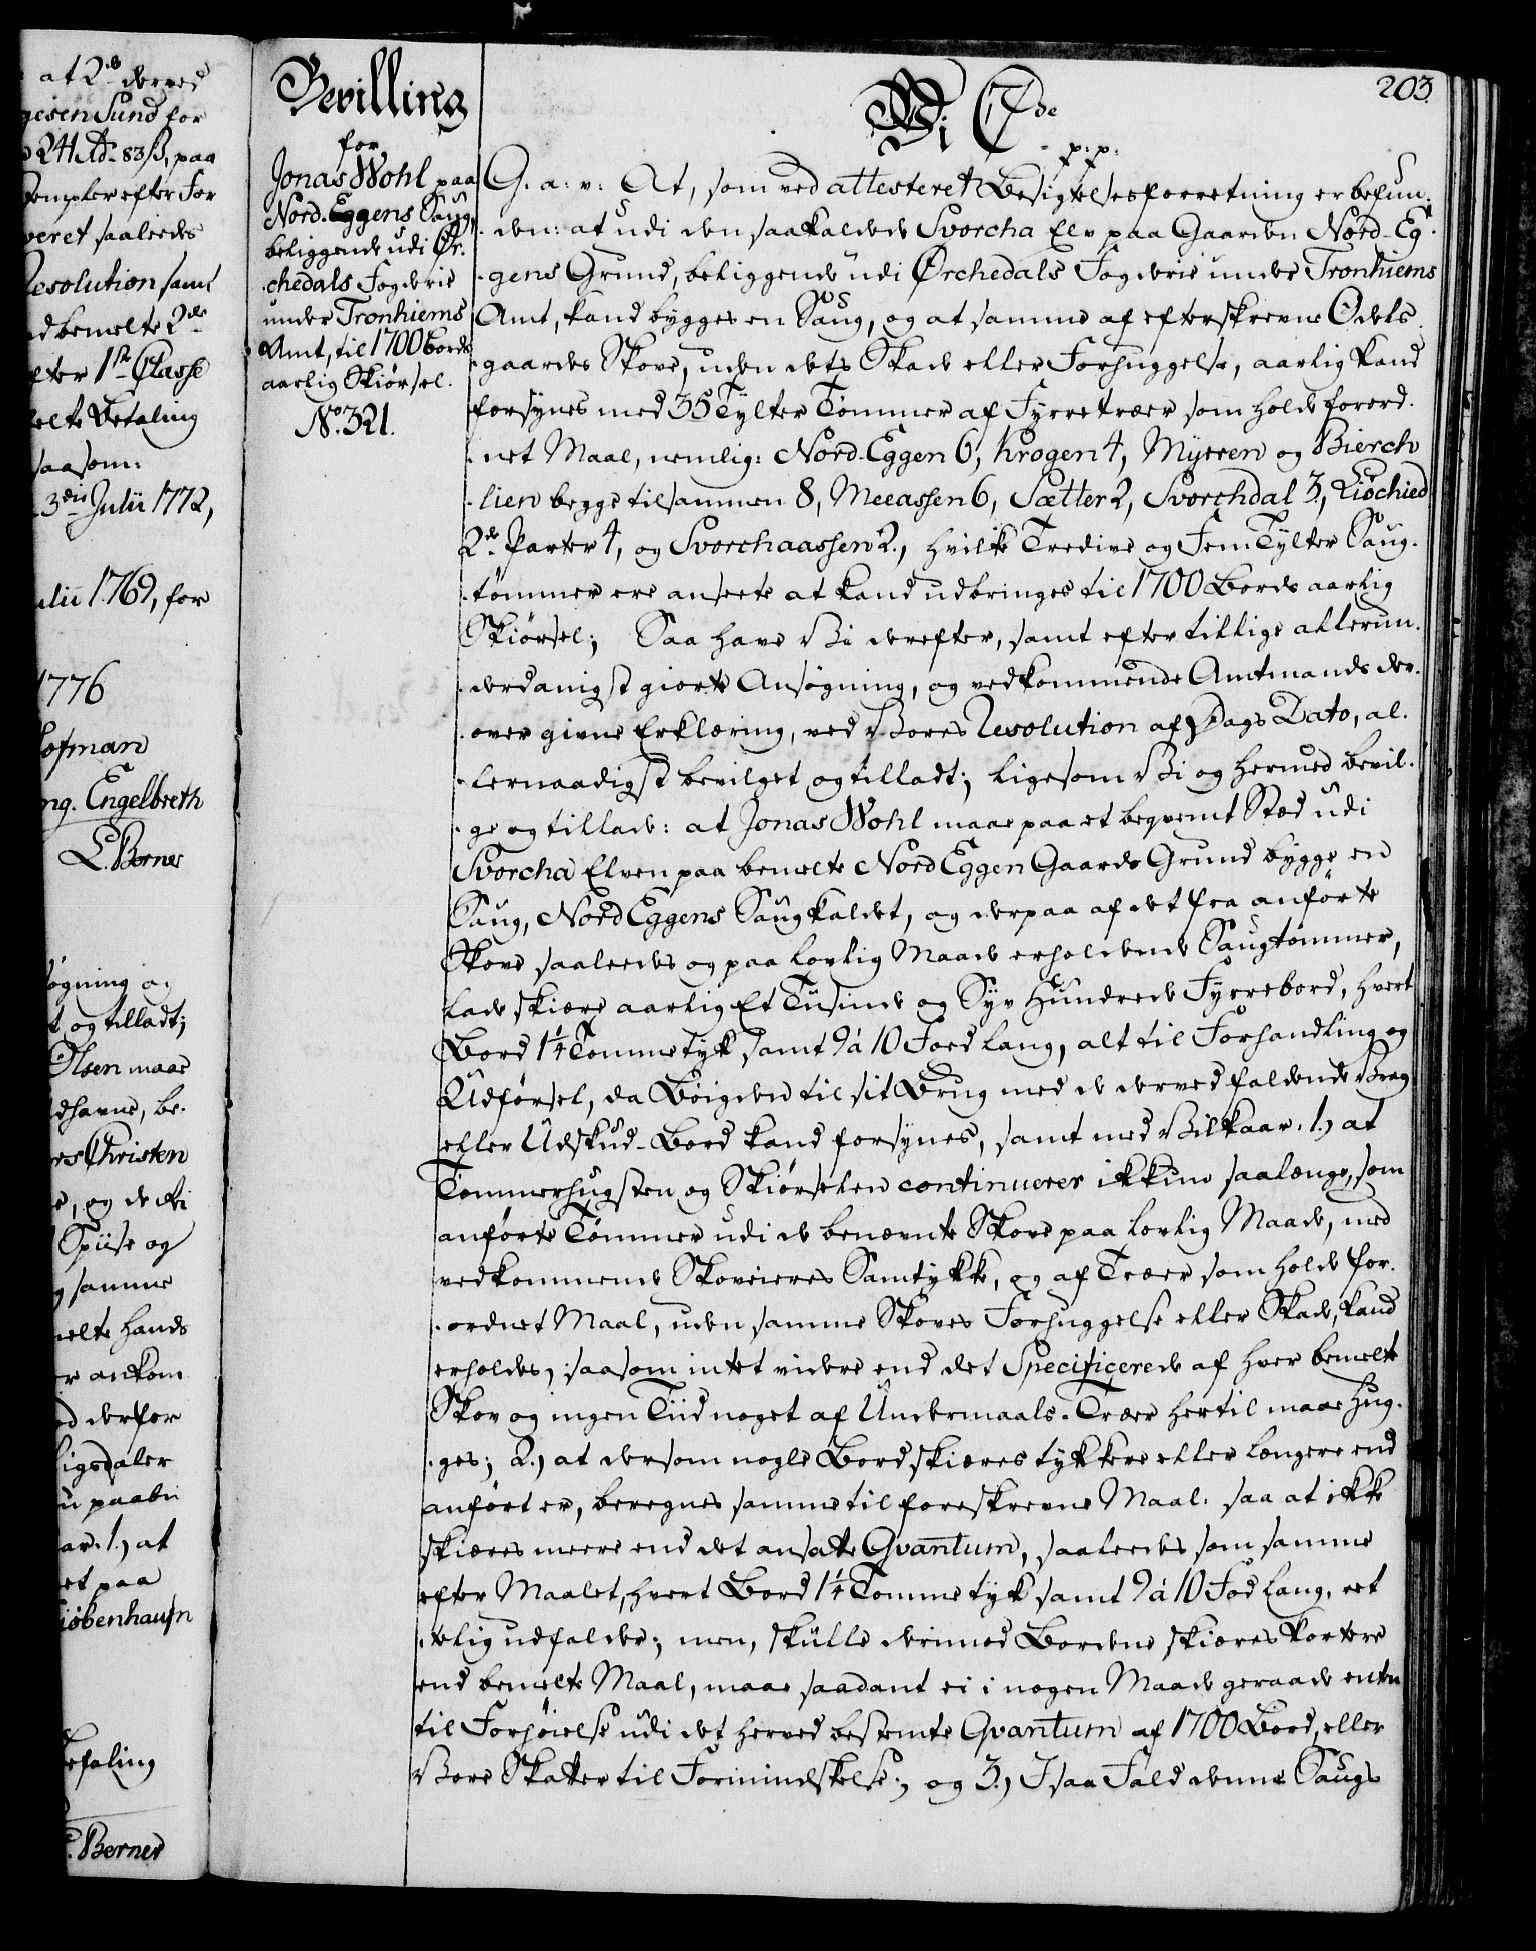 at 2de derved
gesen Sund for
24 Rd. 83 ß, paa
Exempler efter For
veret saaledes
Resolution samt
d bemelte 2de
efter 1ste Classe
elte Betaling
saasom:
3die Julii 1772,
ulii 1769, for
1776
Hofman
ng. Engelbreth
E. Berner
søgning og
t og tilladt;
Olsen maae
dhavne, be-
rs Christen
e, og de Rei
Spiise og
g samme
melte hands
er ankom
ed derfor
Rigsdaler
u paabu
aar. 1.) at
et paa
Kiøbenhaufn
Befaling
E. Berner
Bevilling
for
Jonas Wohl paa
Nord-Eggens Saug,
beliggende udi Ør-
chedals Fogderie
under Tronhiems
Amt, til 1700 Bords
aarlig Skiørsel.
No. 321.
203
Vi C 7de
p: p:
G. a: v: At, som ved attesteret Besigtelsesforretning er befun-
-den: at udi den saakaldede Svorcha Elv paa Gaarden Nord-Eg-
-gens Grund, beliggende udi Ørchedals Fogderie under Tronhiems
Amt, kand bygges en Saug, og at samme af efterskrevne Odels-
-gaardes Skove, uden dets Skade eller Forhuggelse, aarlig kand
forsynes med 35 Tylter Tømmer af Fyrretræer som holde forord-
-net Maal, nemlig: Nord-Eggen 6, Krogen 4, Myrren og Bierch
-lien begge tilsammen 8, Meeassen 6, Sætter 2, Svorchdal 3, Liøchied
2de Parter 4, og Svorchaassen 2., hvilke Tredive og Fem Tylter Saug-
-tømmer ere ansete at kand udbringes til 1700 Bords aarlig
Skiørsel; Saa have Vi derefter, samt efter tillige allerun-
-derdanigst giorte Ansøgning, og vedkommende Amtmands der-
-over givne Erklæring, ved Vores Resolution af Dags Dato, al-
-lernaadigst bevilget og tilladt; ligesom Vi og hermed bevil-
-ge og tillade: at Jonas Wohl maae paa et beqvemt Sted udi
Svorcha Elven paa bemelte Nord Eggen Gaards Grund bygge en
Saug, Nord Eggens Saug kaldet, og derpaa af det fra anførte
Skove saaledes og paa lovlig Maade erholdende Saugtømmer,
lade skiære aarlig Et Tusinde og Syv Hundrede Fyrrebord, hvert
Bord 1¼ Tomme tyk samt 9 á 10 Foed lang, alt til Forhandling og
Udførsel, da Bøigden til sit Brug med de derved faldende Vrag
eller Udskud-Bord kand forsynes, samt med Vilkaar. 1.) at
Tømmerhugsten og Skiørselen continuerer ikkun saalænge, som
anførte Tømmer udi de benævnte Skove paa lovlig Maade, med
vedkommende Skoveieres Samtykke, og af Træer som holde for-
-ordnet Maal, uden samme Skoves Forhuggelse eller Skade, kand
erholdes, saasom intet videre end det Specificerede af hver bemelte
Skov og ingen Tiid noget af Undermaals-Træer hertil maae hug-
-ges; 2.) at dersom nogle Bord skiæres tykkere eller længere end
anført er, beregnes samme til foreskrevne Maal. saa at ikke
skiæres meere end det ansatte Qvantum, saaledes som samme
efter Maalet, hvert Bord 1¼ Tomme tyk samt 9 á 10 Fod lang, ret
-telig udfalder; men, skulle derimod Bordene skiæres kortere
end bemelte Maal, maae saadant ei i nogen Maade geraade enten
til Forhøielse udi det herved bestemte Qvantum af 1700 Bord, eller
Vore Skatter til Formindskelse; og 3.) I saa Fald denne Saugs